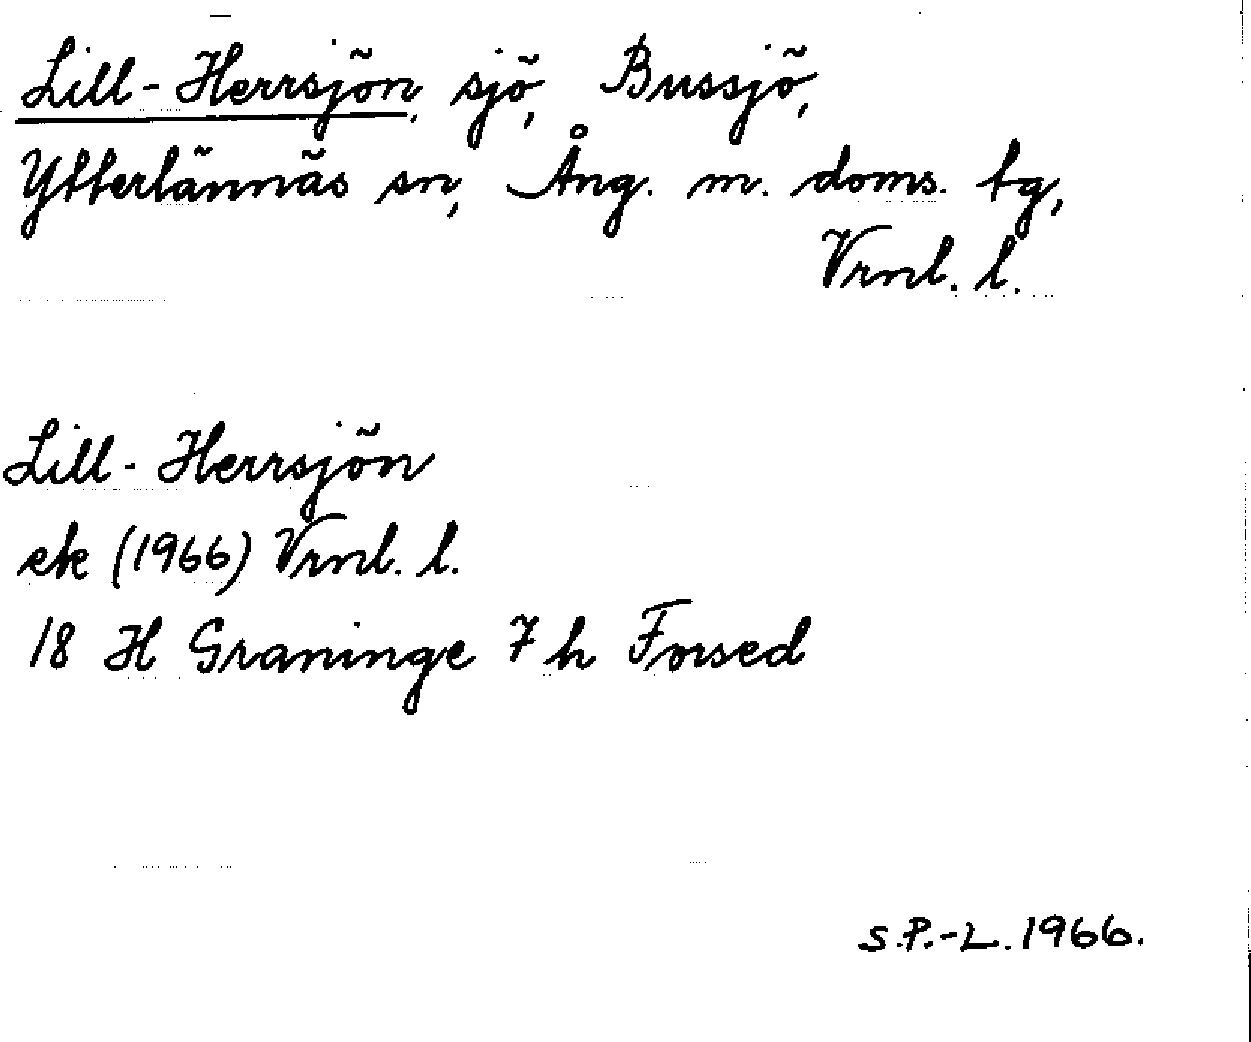 Lill-Herrsjön, sjö, Bussjö,
Ytterlännäs sn, Ång. m. doms. tg,
Vrnl. l.
Lill-Herrsjön
ek (1966) Vrnl. l.
18 H Graninge 7 h Forsed
S.P.-L. 1966.